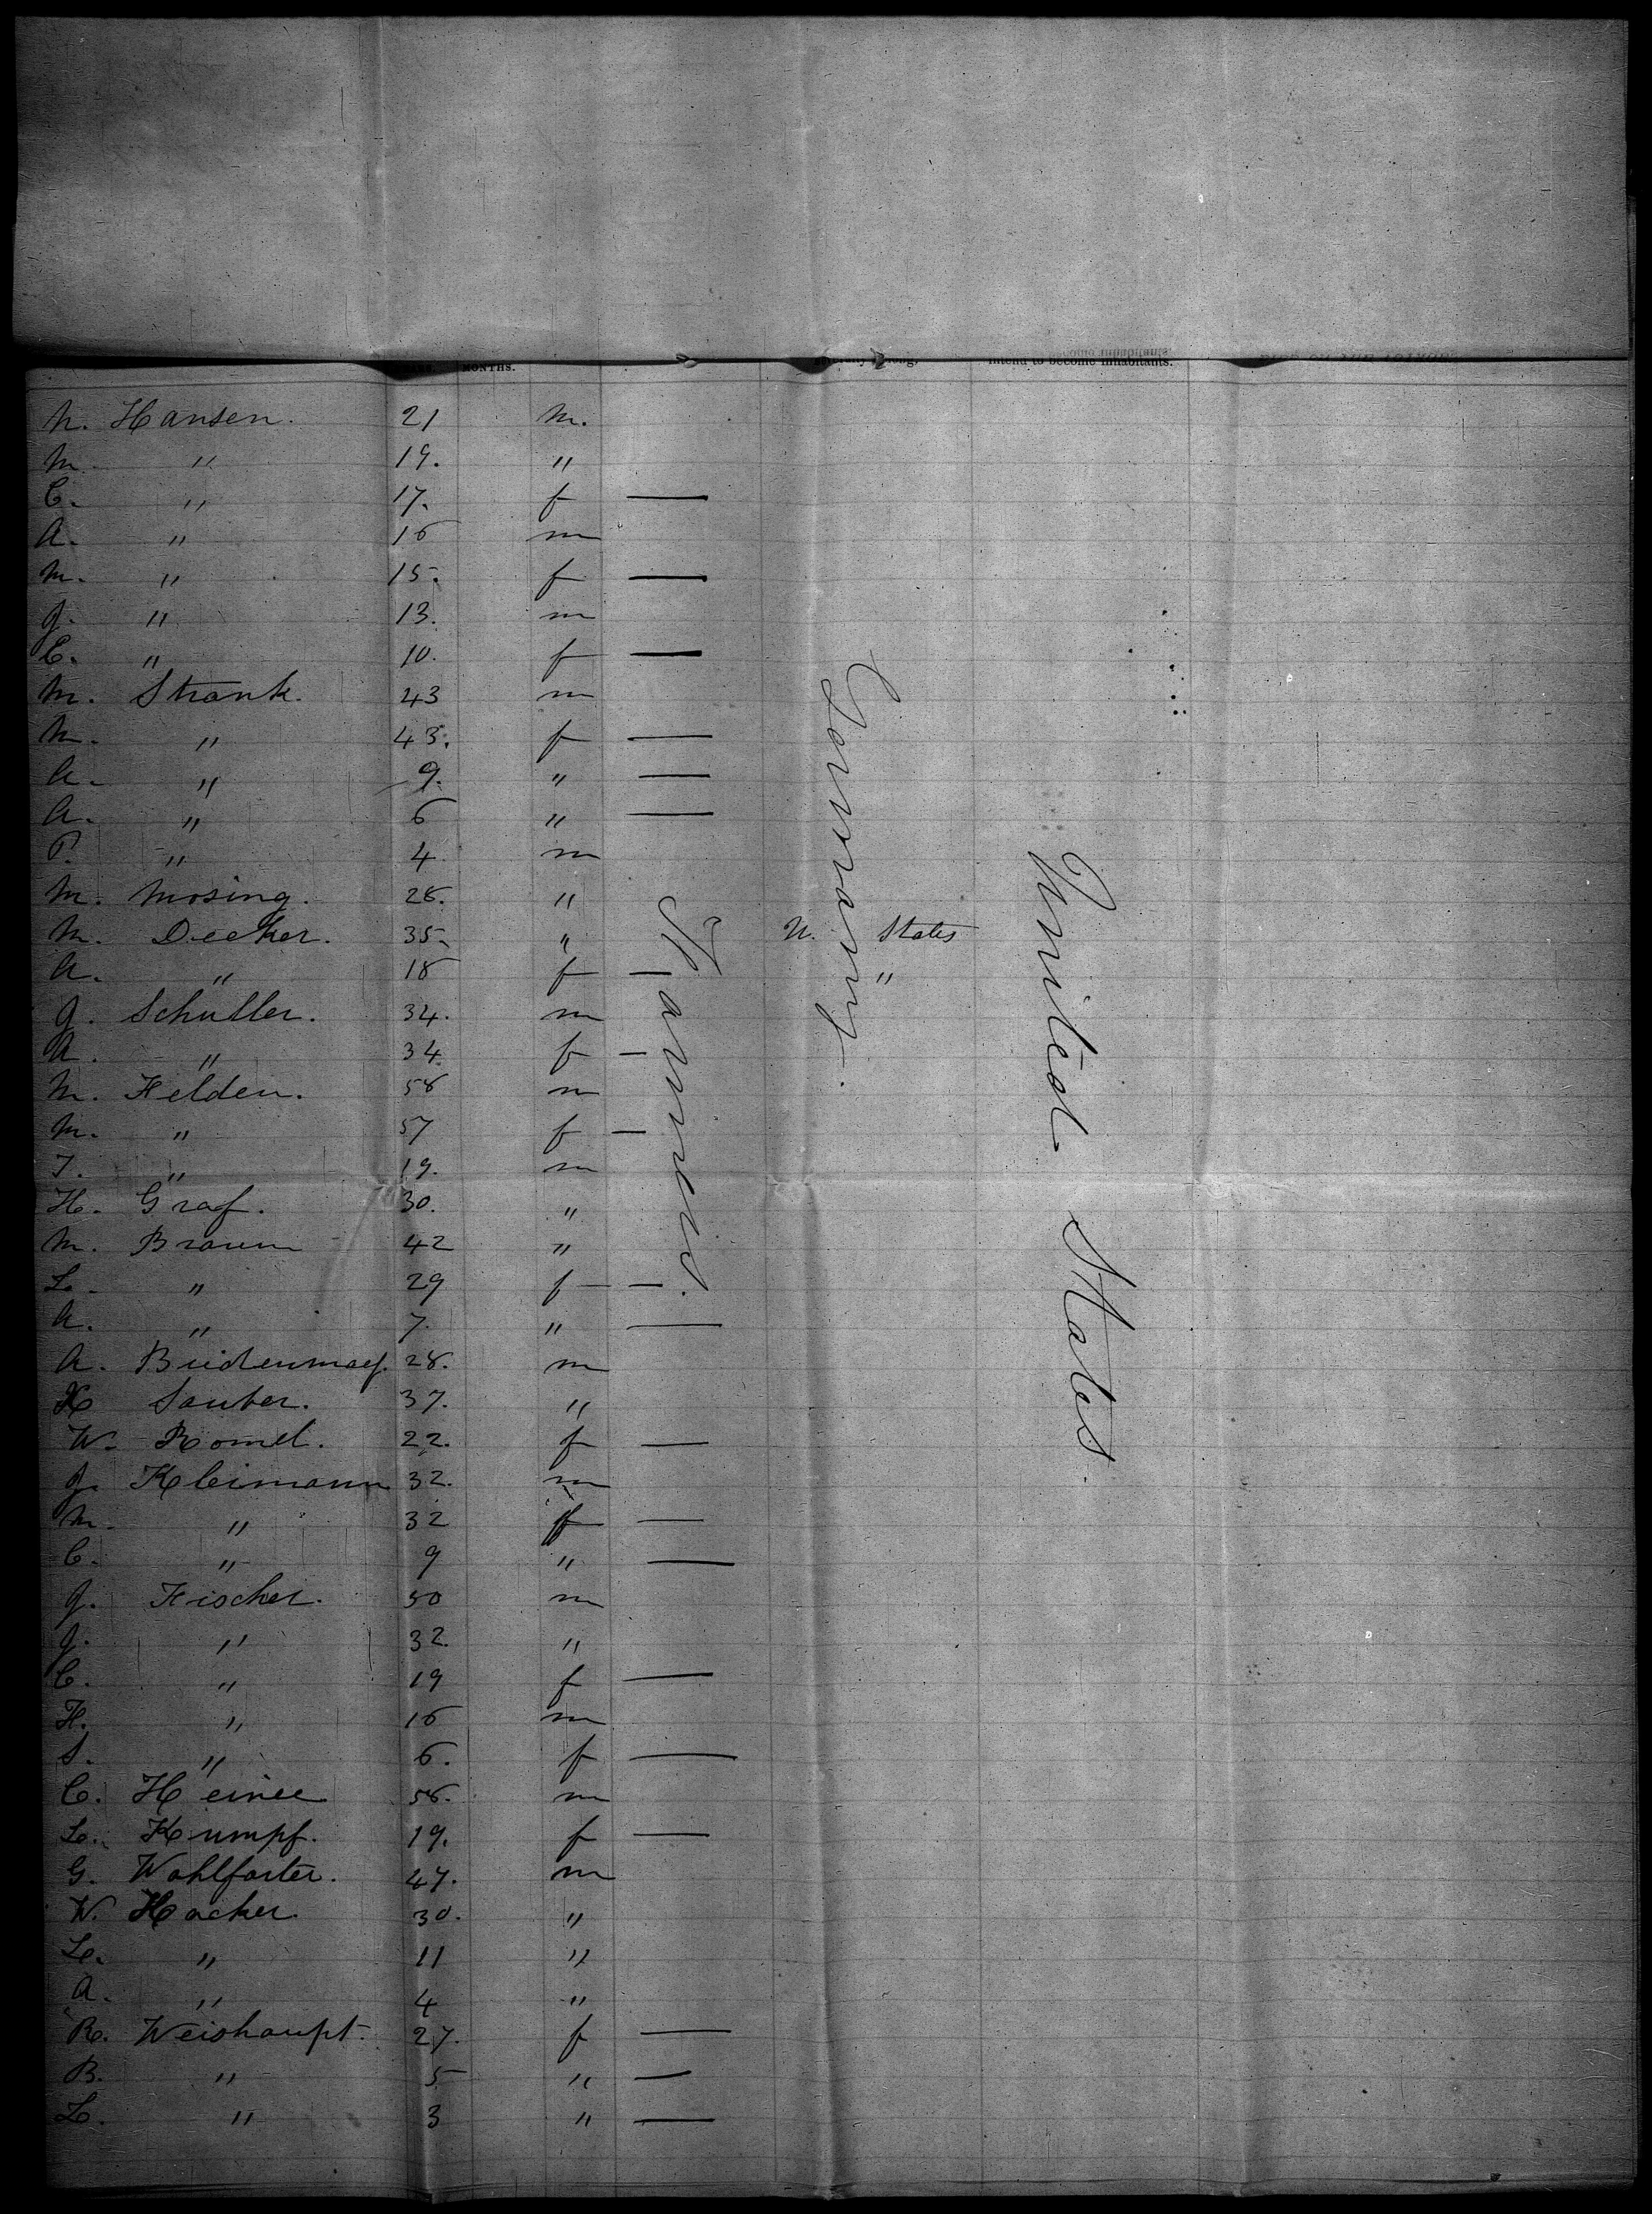 MONTHS. intend to become inhabitants.
N. Hansen. 21 m.
M. " 19. "
C. " 17. f —
A. " 16 m
M. " 15. f —
J. " 13. m
E. " 10. f —
M. Strank. 43 m
M. " 43. f —
A. " 9. " —
A. " 6 " —
P. " 4 m
M. Mosing. 28. "
M. Decker. 35. " U. States
A. " 18 f — "
J. Schuller. 34. m
A. " 34. f —
M. Felden. 58 m
M. " 57 f —
T. " 19. m
H. Graf. 30. "
M. Braun 42 "
L. " 29 f —
A. " 7. " —
A. 28. m
H Sauber. 37. "
W. Romel. 22. f —
J. Kleimann 32. m
M. " 32 f —
C. " 9 " —
J. Fischer. 50 m
J. " 32. "
C. " 19 f —
F. " 16 m
S. " 6. f —
C. Heinee 58. m
L. Kumpf. 19. f —
G. Wohlfarter. 47. m
W. Hacker. 30. "
L. " 11 "
A. " 4 "
R. Weishaupt. 27. f —
B. " 5 " —
L. " 3 " —
Farmers.
Germany.
United States